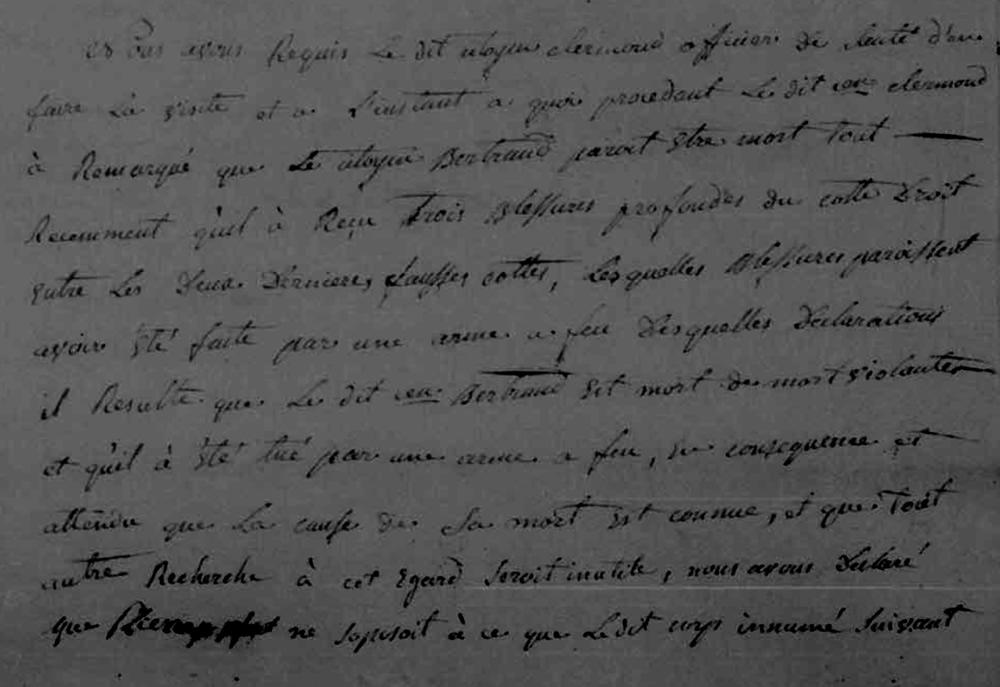 avons Requis Le dit citoyen clermond officier de Senté d'en
faire La visite et a L'instant a quoi procedant Le dit cen clermond
à Remarqué que Le citoyen Bertrand paroit Etre mort tout
Recemment qu'il à Reçu trois Blessures profondes du cotté Droit
Entre Les Deux Dernieres fausses cottes, Lesquelles Blessures paroissent
avoir Eté faite par une arme a feu Desquelles Declarations
il Resulte que Le dit cen Bertrand Est mort de mort violante
et qu'il à Eté tué par une arme a feu, En consequence et
attendu que La cause de Sa mort Est connue, et que Tout
autre Recherche à cet Egard Seroit inutile, nous avons Declaré
que Rien ne Soposoit à ce que Ledit corps innumé Suivant